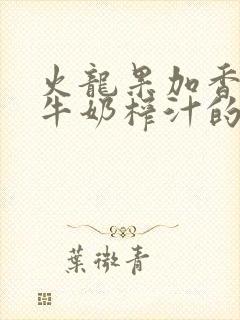 火龍果加香
牛奶榨汁的
葉微青